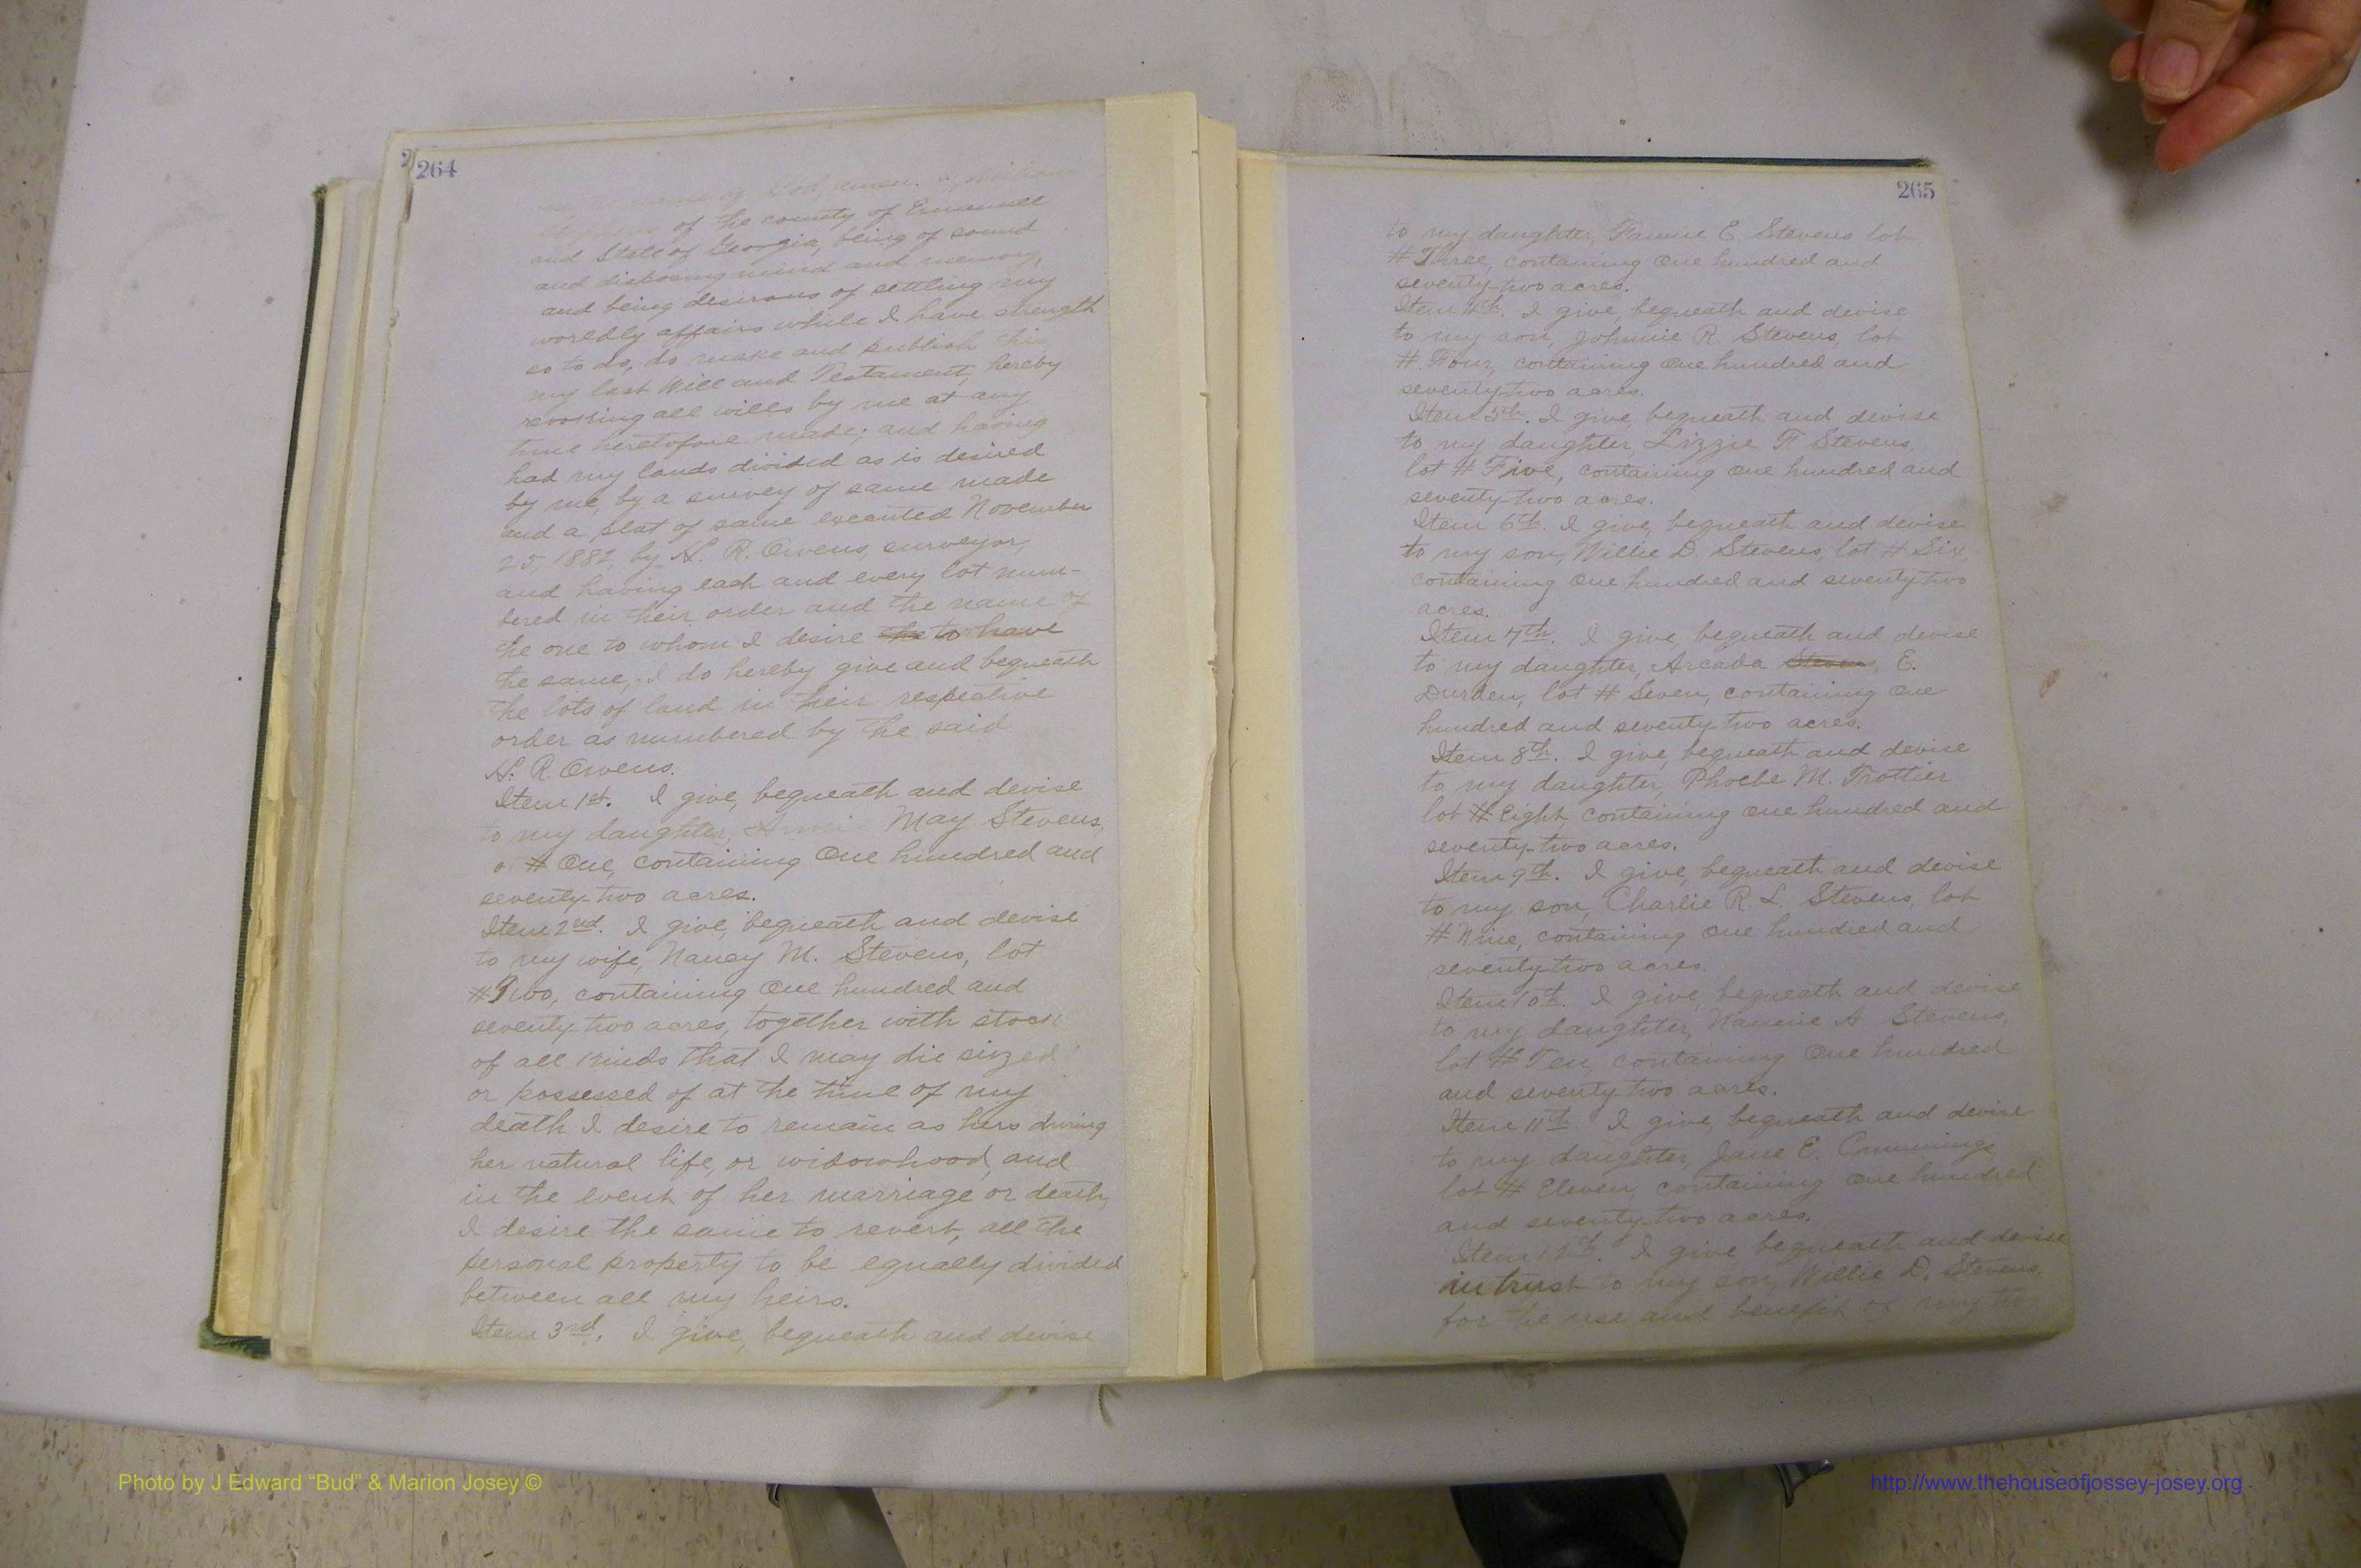 264
of God, amen. I, William
of the county of Emanuel
and State of Georgia, being of sound
and disposing mind and memory,
and being desirous of settling my
woreldly affairs while I have strength
so to do, do make and publish this
my last Will and Testament, hereby
revoking all wills by me at any
time heretofore made; and having
had my lands divided as is desired
by me, by a survey of same made
and a plat of same executed November
25, 1882, by H. R. Owens, surveyor,
and having each and every lot num-
bered in their order and the name of
the one to whom I desire the to have
the same, I do hereby give and bequeath
the lots of land in their respective
order as numbered by the said
H. R. Owens.
Item 1st. I give, bequeath and devise
to my daughter, May Stevens,
# One, containing One hundred and
seventy-two acres.
Item 2nd. I give, bequeath and devise
to my wife, Nancy M. Stevens, lot
# Two, containing One hundred and
seventy-two acres, together with stock
of all kinds that I may die siezed
or possessed of at the time of my
death I desire to remain as hers during
her natural life, or widowhood, and
in the event of her marriage or death,
I desire the same to revert, all the
personal property to be equally divided
between all my heirs.
Item 3rd. I give, bequeath and devise
265
to my daughter, Fannie E. Stevens lot
# Three, containing One hundred and
seventy-two acres.
Item 4th. I give, bequeath and devise
to my son, Johnnie R. Stevens, lot
# Four, containing One hundred and
seventy-two acres.
Item 5th. I give, bequeath and devise
to my daughter, Lizzie F. Stevens,
lot # Five, containing One hundred and
seventy-two acres.
Item 6th. I give, bequeath and devise
to my son, Willie D. Stevens, lot # Six,
containing One hundred and seventy-two
acres.
Item 7th. I give, bequeath and devise
to my daughter, Arcada Steven, E.
Durden, lot # Seven, containing One
hundred and seventy-two acres.
Item 8th. I give, bequeath and devise
to my daughter, Phoebe M. Trottier
lot # Eight, containing One hundred and
seventy-two acres.
Item 9th. I give, bequeath and devise
to my son, Charlie R. L. Stevens, lot
# Nine, containing One hundred and
seventy-two acres.
Item 10th. I give, bequeath and devise
to my daughter, Nannie A. Stevens,
lot # Ten, containing One hundred
and seventy-two acres.
Item 11th. I give, bequeath and devise
to my daughter, Jane E. Cummings
lot # Eleven, containing One hundred
and seventy-two acres.
Item 12th. I give bequeath and devise
in trust to my son, Willie D. Stevens,
for the use and benefit of my two
Photo by J Edward “Bud” & Marion Josey ©
http://www.thehouseofjossey-josey.org